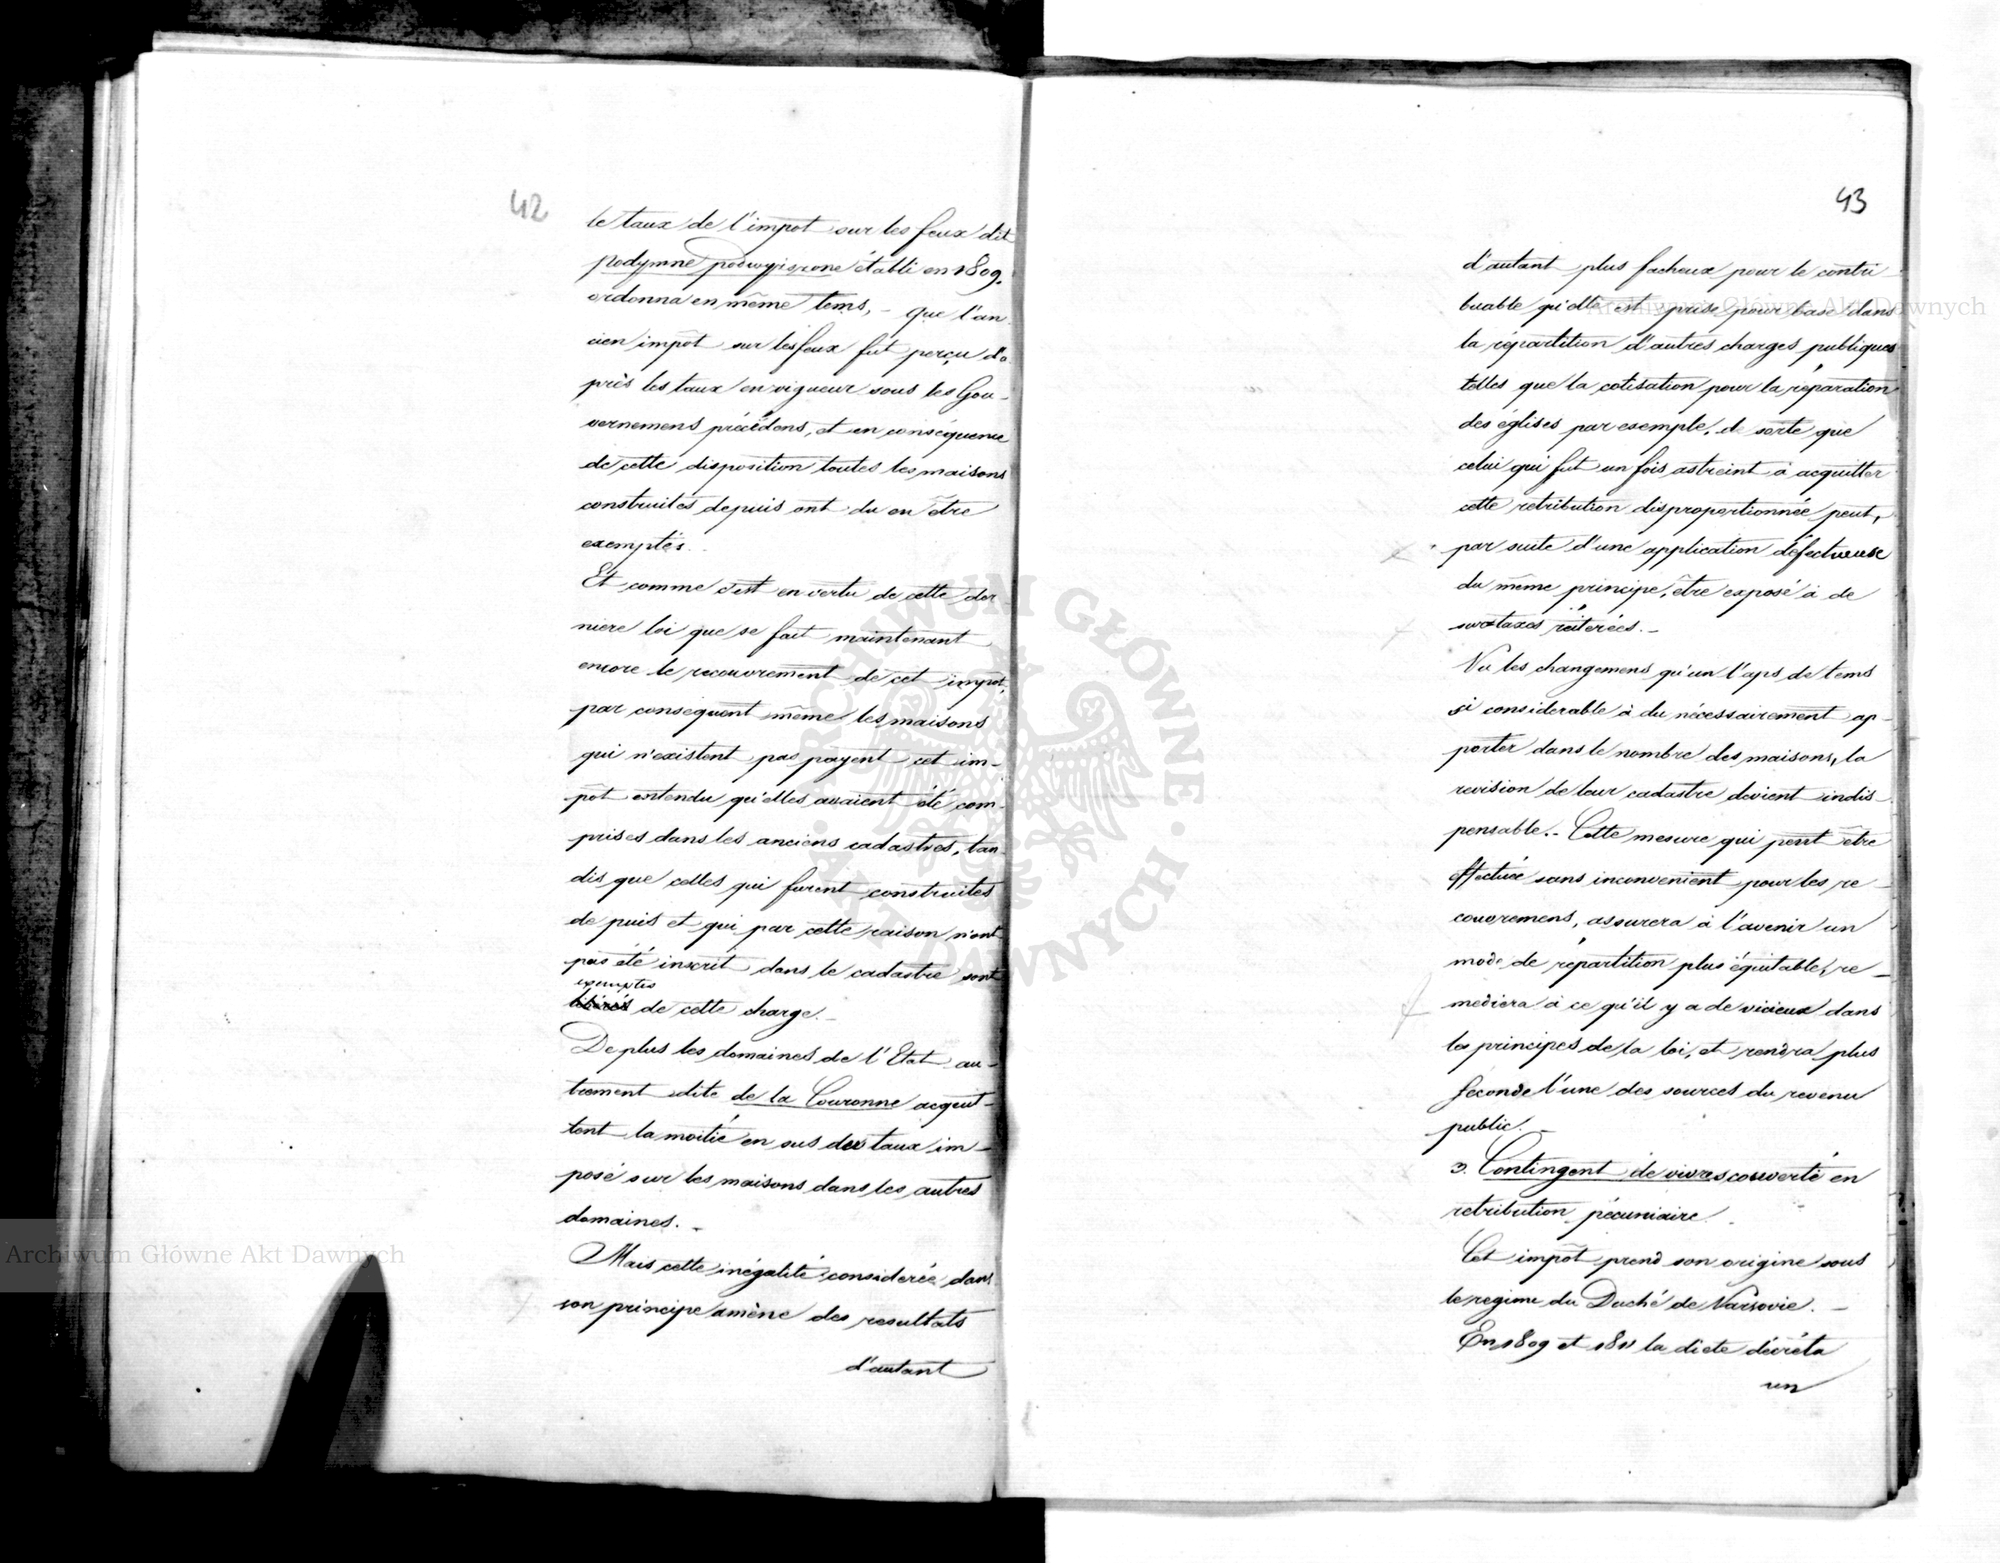 42
le taux de l'impot sur les feux dit
podymne podwyiszone établi en 1809.
ordonna en même tems, - que l'an
cien impôt sur les feux fut perçu d'a
près les taux en vigueur sous les Gou-
vernemens précédens, et en conséquence
de cette disposition toutes les maisons
construites depuis ont du en être
exemptés.
Et comme c'est en vertu de cette der
niere loi que se fait maintenant
encore le recouvrement de cet impot,
par conséquent même les maisons
qui n'existent pas payent cet im-
pôt entendu qu'elles avaient été com-
prises dans les anciens cadastres, tan
dis que celles qui furent construites
de puis et qui par cette raison n'ont
pas été inscrit dans le cadastre sont
exemptés
de cette charge. -
De plus les domaines de l'Etat au-
trement dite de la Couronne acquit-
tent la moitié en sus des taux im-
posé sur les maisons dans les autres
domaines. -
Mais cette inégalité considerée dans
son principe amène des resultats
d'autant
43
d'autant plus facheux pour le contri
buable qu'elle est prise pour base dans
la répartition d'autres charges publiques
telles que la cotisation pour la réparation
des églises par exemple, de sorte que
celui qui fut un fois astreint à acquitter
cette retribution disproportionnée peut,
par suite d'une application défectueuse
du même principe, être exposé à de
surtaxes réiterées. -
Vu les changemens qu'un l'aps de tems
si considerable à du nécessairement ap-
porter dans le nombre des maisons, la
revision de leur cadastre devient indis-
pensable. - Cette mesure qui peut être
effectuée sans inconvenient pour les re-
couvremens, assurera à l'avenir un
mode de répartition plus équitable, re-
mediera à ce qu'il y a de vicieux dans
les principes de la loi, et rendra plus
féconde l'une des sources du revenu
public. -
3. Contingent de vivres converti en
retribution pécuniaire.
Cet impôt prend son origine sous
le regime du Duché de Varsovie. -
En 1809 et 1811 la diete décréta
un
Archiwum Główne Akt Dawnych
Archiwum Główne Akt Dawnych
ARCHIWUM GŁÓWNE AKT DAWNYCH